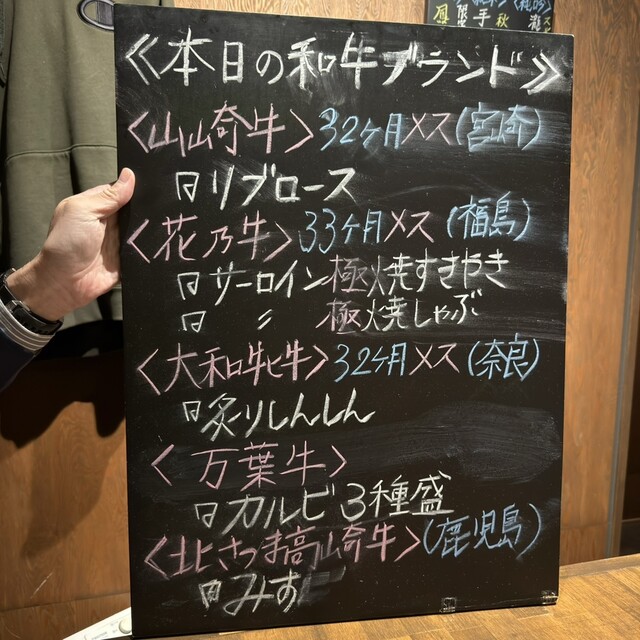 ≪本日の和牛ブランド≫
<山山奇牛>32ヶ月メス(宮崎)
リブロース
<花乃牛>33ヶ月メス(福島)
サーロイン極焼すきやき
〃 極焼しゃぶ
<大和牝牛>32ヶ月メス(奈良)
炙りしんしん
<万葉牛>
カルビ3種盛
<北さつま高崎牛>(鹿児島)
みすじ